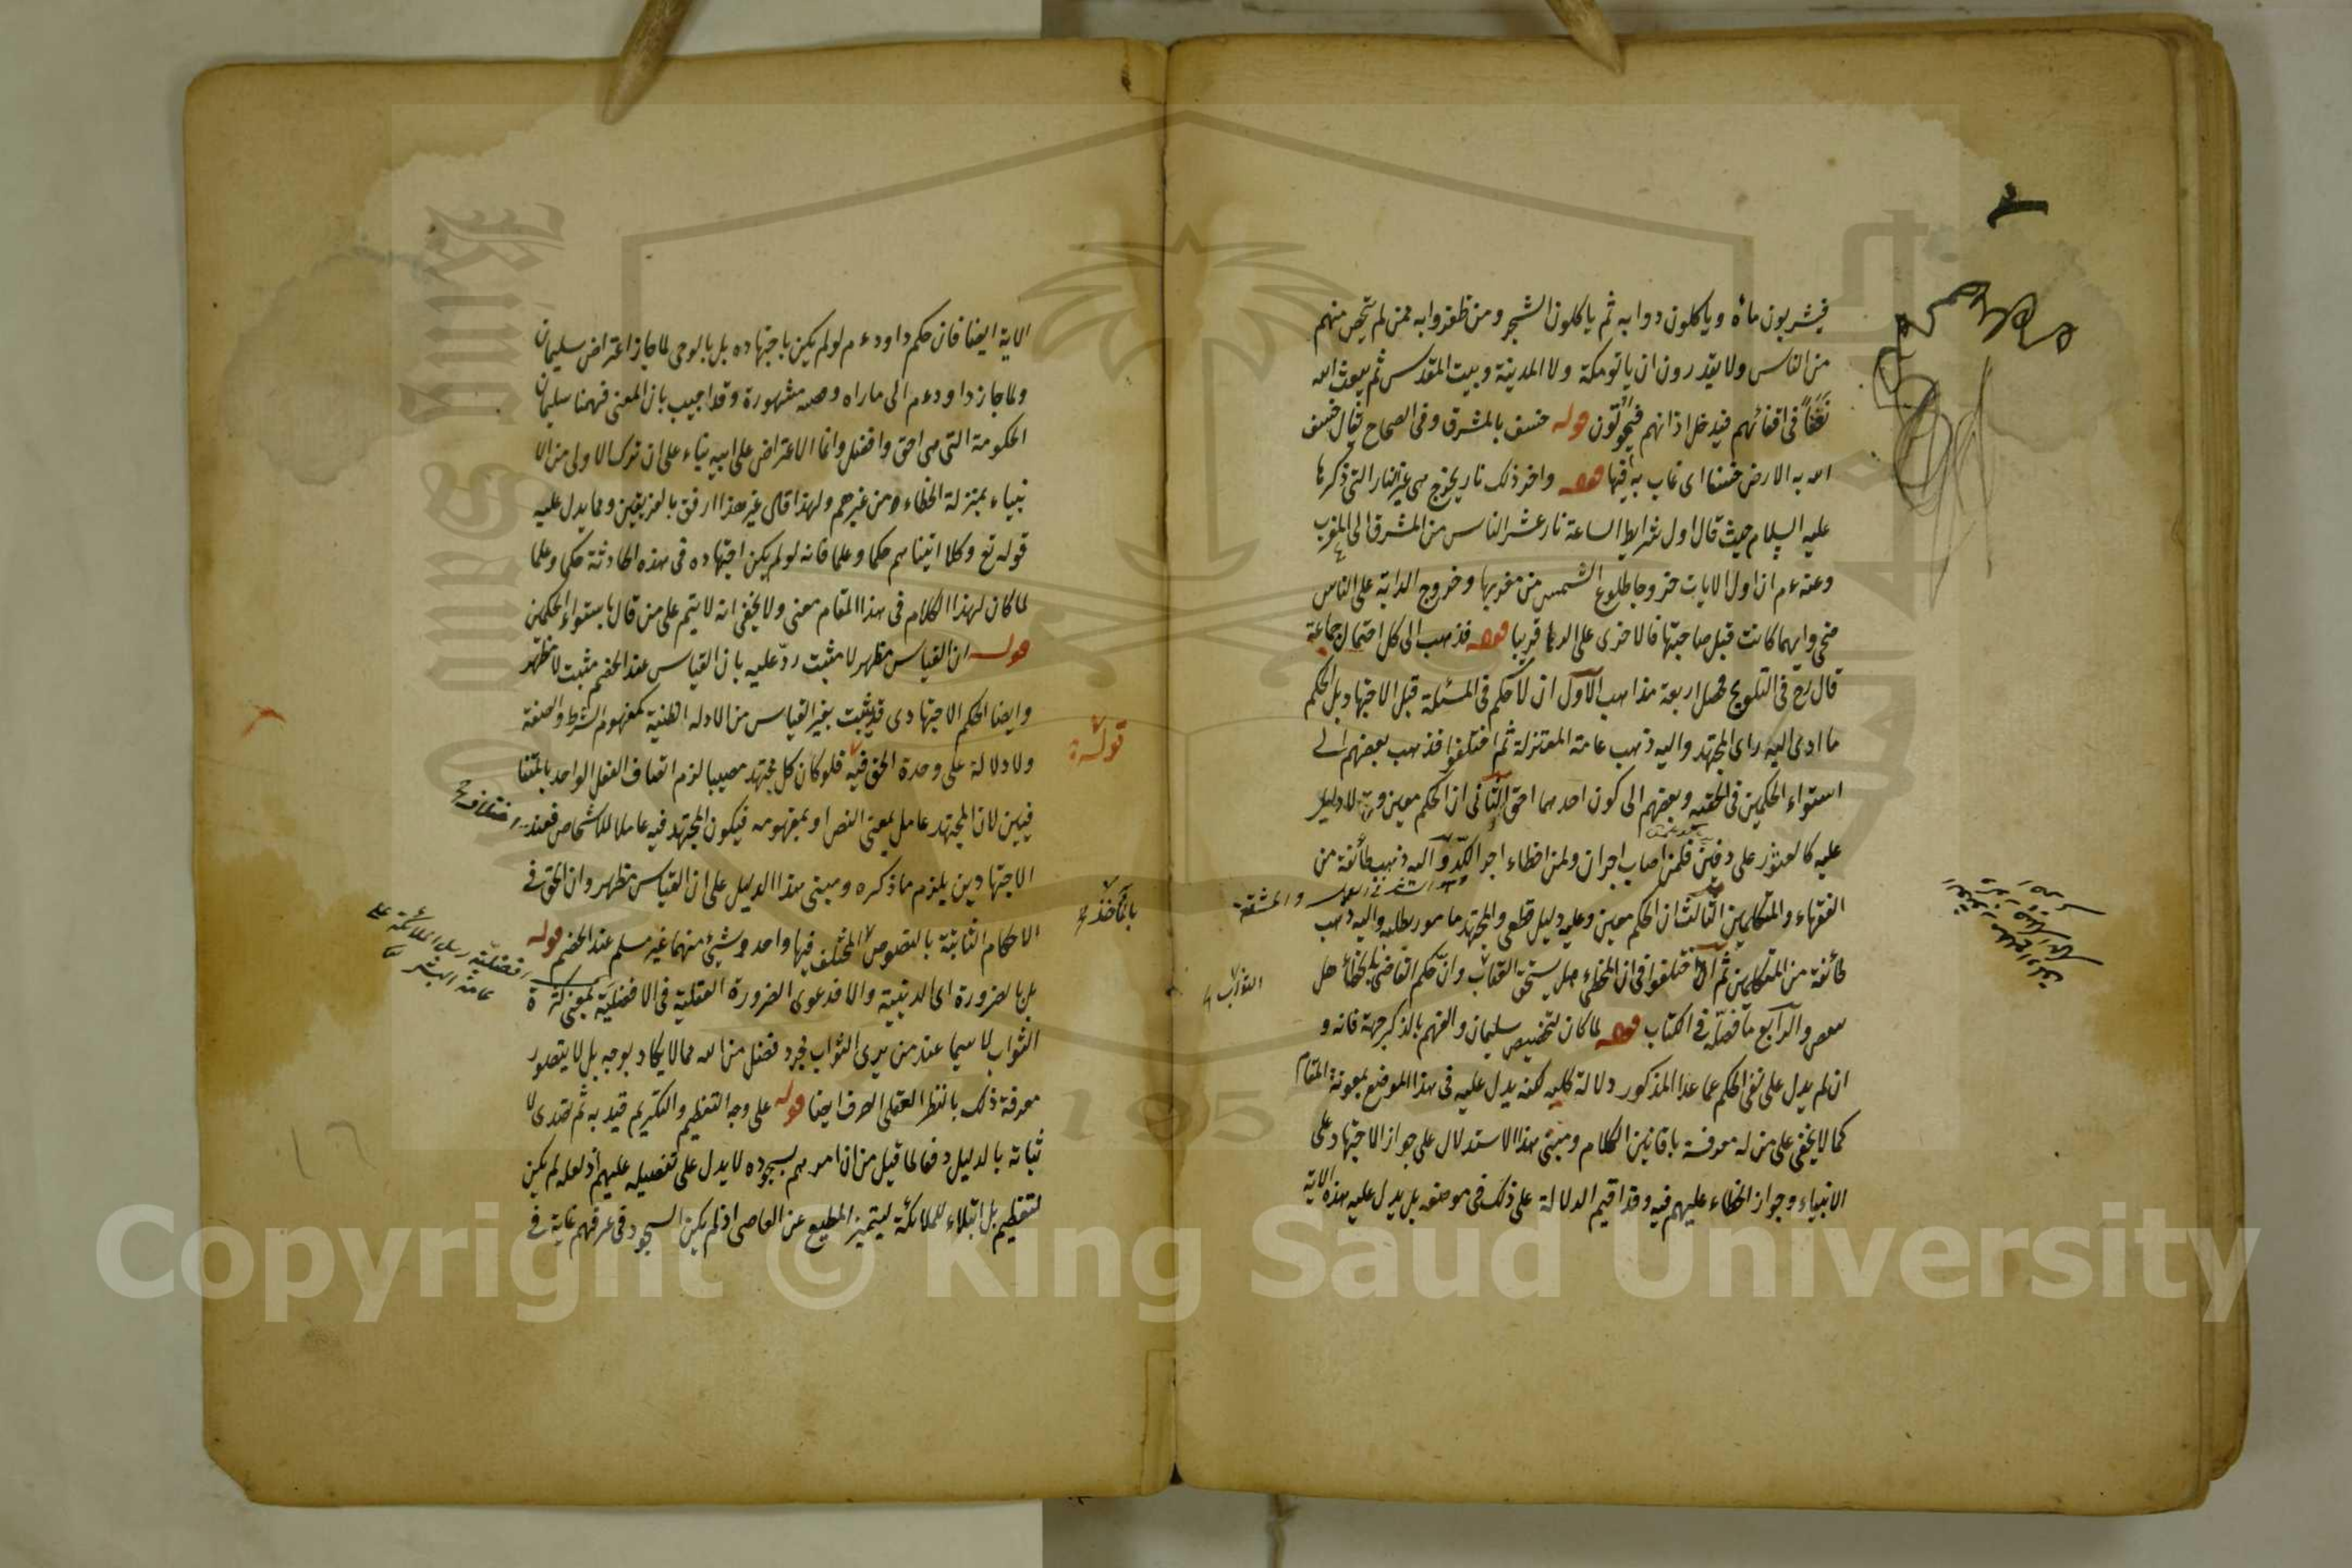 فيشربون ماءه وياكلون دوابه ثم ياكلون الشجر ومن ظفروا به ممن لم تحصن منهم
من الناس ولا يقدرون ان ياتو مكة ولا المدينة وبيت المقدس ثم يبعث الله
نغفا في اقفائهم فيدخل اذانهم فيموتون قوله خسف بالمشرق وفي الصحاح يقال خسف
الله به الارض خسفا اى غاب به فيها قوله واخر ذلك نار يخرج هى غير النار التى ذكرها
عليه السلام حيث قال اول شرايط الساعة نار تحشر الناس من المشرق الى المغرب
وعنه عم ان اول الايات خروجا طلوع الشمس من مغربها وخروج الدابة على الناس
ضحى وايهما كانت قبل صاحبتها فالاخرى على اثرها قريبا قوله فذهب الى كل احتمال جماعة
قال رح فى التلويح فحصل اربعة مذاهب الاول ان لا حكم فى المسئلة قبل الاجتهاد بل الحكم
ما ادى اليه راى المجتهد واليه ذهب عامة المعتزلة ثم اختلفوا فذهب بعضهم الى
استواء الحكمين فى الحقية وبعضهم الى كون احدهما احق الثانى ان الحكم معين ولا دليل
عليه كالعثور على دفين فلمن اصاب اجران ولمن اخطاء اجر الكد واليه ذهب طائفة من
الفقهاء والمتكلمين الثالث ان الحكم معين وعليه دليل قطعى والمجتهد مامور بطلبه واليه ذهب
طائفة من المتكلمين ثم اختلفوا فى ان المخطى هل يستحق العقاب وان حكم القاضى بالخطاء هل
ينقض والرابع ما فصله فى الكتاب قوله لما كان لتخصيص سليمان والفهم بالذكر جهة فانه و
ان لم يدل على نفى الحكم عما عدا المذكور دلالة كلية لكنه يدل عليه فى هذا الموضع بمعونة المقام
كما لا يخفى على من له معرفة باقانين الكلام ومبنى هذا الاستدلال على جواز الاجتهاد على
الانبياء وجواز الخطاء عليهم فيه وقد اقيم الدلالة على ذلك فى موضعه بل يدل عليه هذه الاية
والمشقة
الاية ايضا فان حكم داود عم لو لم يكن باجتهاده بل بالوحى لما جاز اعتراض سليمان
ولما جاز داود عم الى ما راه وقصته مشهورة وقد اجيب بان المعنى ففهمنا سليمان
الحكومة التى هى احق وافضل وانما الاعتراض على ابيه بناء على ان ترك الاولى من الا
نبياء بمنزلة الخطاء من غيرهم ولهذا قال غير هذا ارفق بالفريقين ومما يدل عليه
قوله تع وكلا اتيناهم حكما وعلما فانه لو لم يكن اجتهاده فى هذه الحادثة حكما وعلما
لما كان لهذا الكلام فى هذا المقام معنى ولا يخفى انه لا يتم على من قال باستواء الحكمين
قوله ان القياس مظهر لا مثبت رد عليه بان القياس عند الخصم مثبت لا مظهر
وايضا الحكم الاجتهادى قد يثبت بغير القياس من الادلة الظنية كمفهوم الشرط والصفة
ولا دلالة على وحدة الحق فيه فلو كان كل مجتهد مصيبا لزم اتصاف الفعل الواحد بالمتنا
فيين لان المجتهد عامل بمعنى النص او بمفهومه فيكون المجتهد فيه عاما للاشخاص فعند
الاجتهادين يلزم ما ذكره ومبنى هذا الدليل على ان القياس مظهر وان الحق فى
الاحكام الثابتة بالنصوص المختلف فيها واحد وشئ منهما غير مسلم عند الخصم قوله
بل بالضرورة اى الدينية والا فدعوى الضرورة العقلية فى الافضلية بمعنى كثرة
الثواب لا سيما عند من يرى الثواب مجرد فضل من الله مما لا يكاد يوجه بل لا يتصور
معرفة ذلك بالنظر العقلى الصرف ايضا قوله على وجه التعظيم والتكريم قيد به ثم تصدى لا
ثباته بالدليل دفعا لما قيل من ان امرهم بسجوده لا يدل على تفضيله عليهم اذ لعله لم يكن
لتعظيم بل ابتلاء للملائكة ليتميز المطيع عن العاصى اذ لم يكن السجود فى عرفهم غاية فى
قوله
اختلاف
افضلية رسل الملائكة على
عامة البشر
Copyright © King Saud University
King Saud
1957